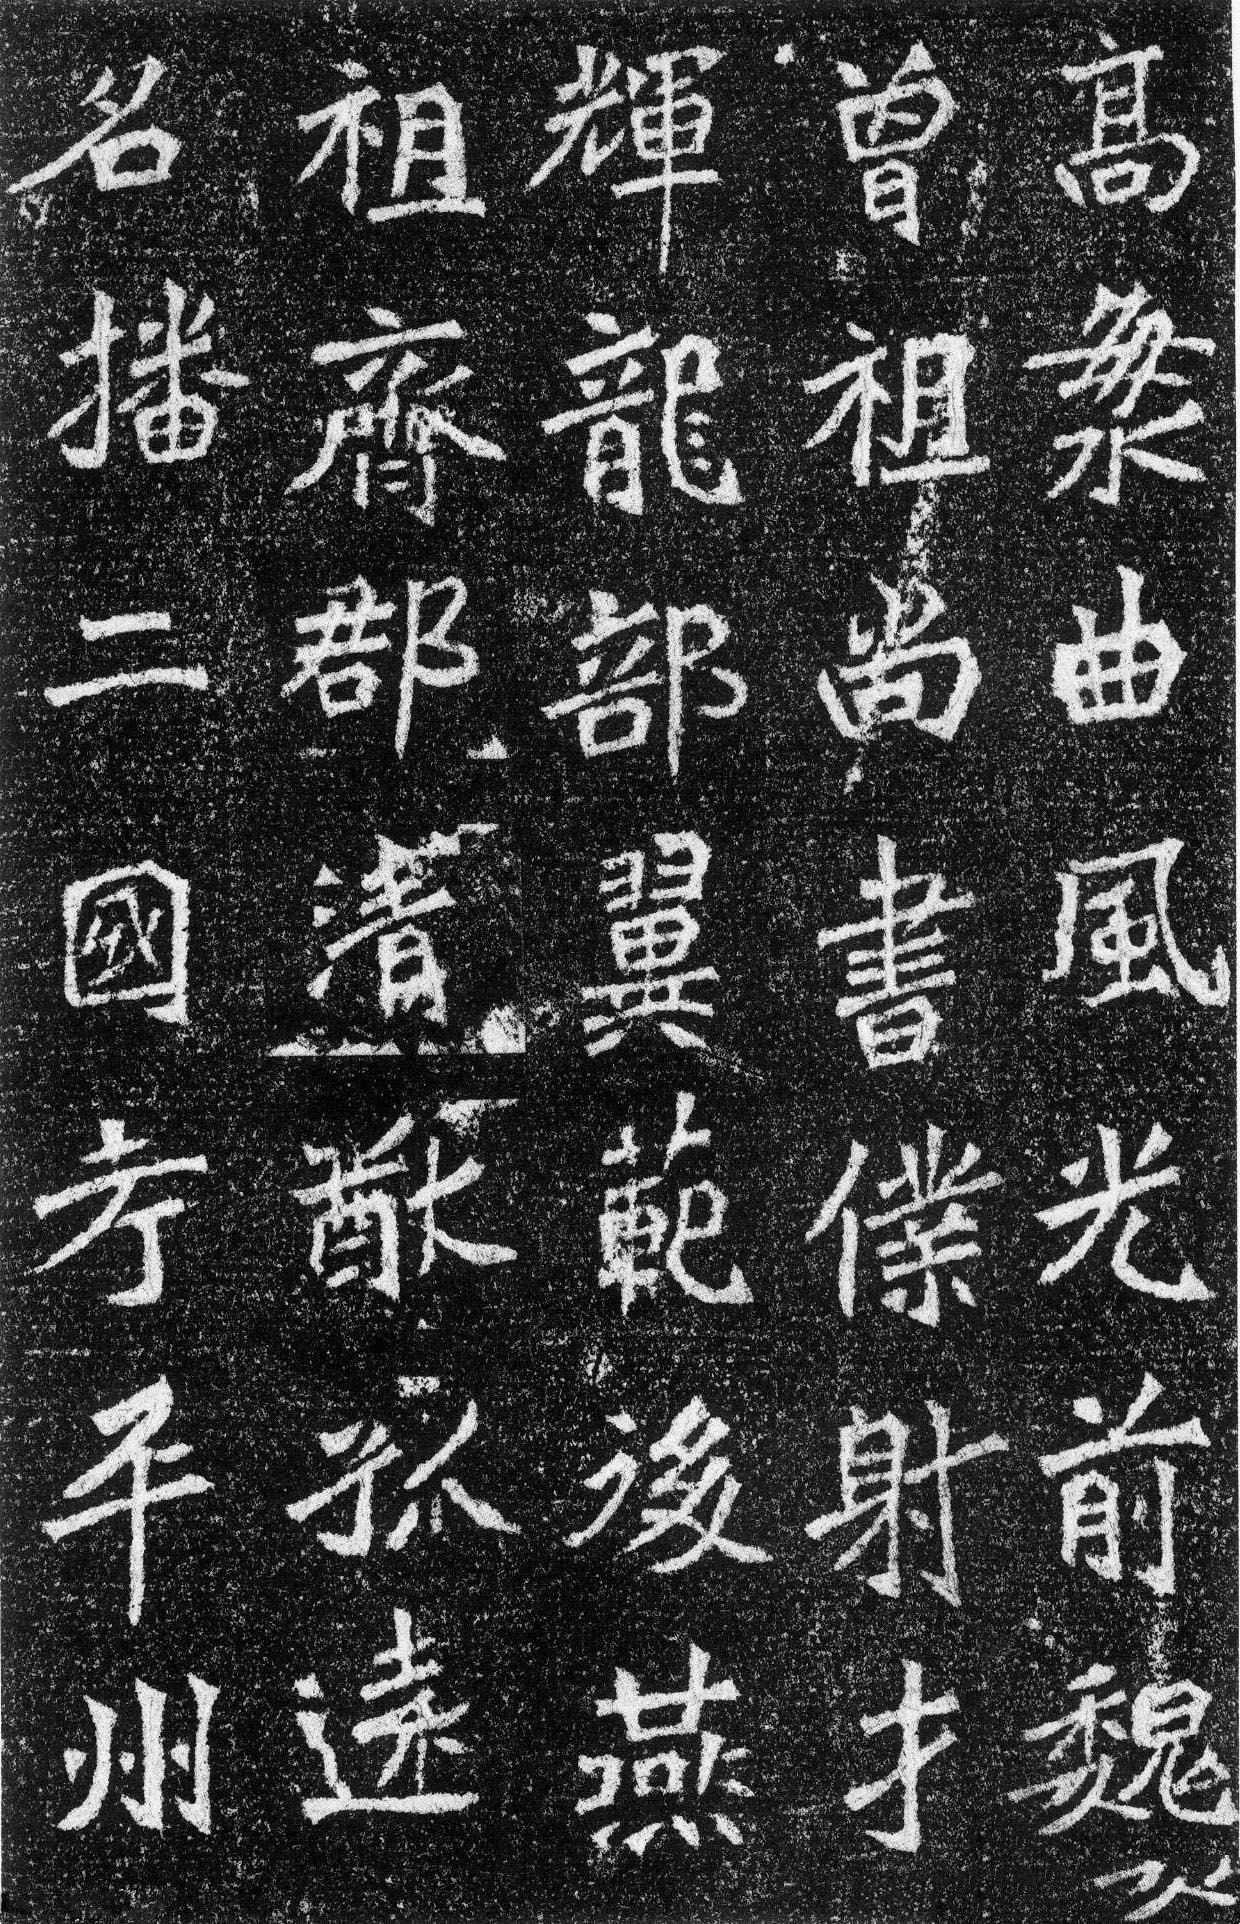 高曲風光前魏
曾祖尚書僕射才
輝龍部翼範後燕
祖齊郡清猷孤遠
名播二國考平州